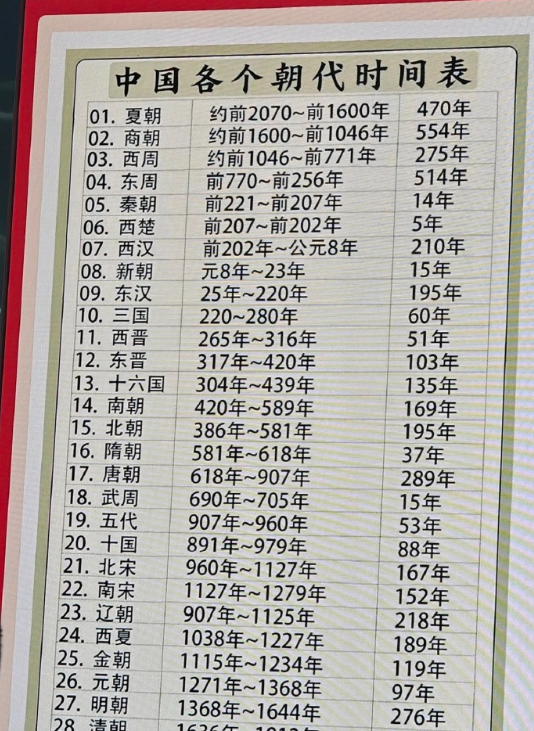 中国各个朝代时间表
01. 夏朝 约前2070~前1600年 470年
02. 商朝 约前1600~前1046年 554年
03. 西周 约前1046~前771年 275年
04. 东周 前770~前256年 514年
05. 秦朝 前221~前207年 14年
06. 西楚 前207~前202年 5年
07. 西汉 前202年~公元8年 210年
08. 新朝 元8年~23年 15年
09. 东汉 25年~220年 195年
10. 三国 220~280年 60年
11. 西晋 265年~316年 51年
12. 东晋 317年~420年 103年
13. 十六国 304年~439年 135年
14. 南朝 420年~589年 169年
15. 北朝 386年~581年 195年
16. 隋朝 581年~618年 37年
17. 唐朝 618年~907年 289年
18. 武周 690年~705年 15年
19. 五代 907年~960年 53年
20. 十国 891年~979年 88年
21. 北宋 960年~1127年 167年
22. 南宋 1127年~1279年 152年
23. 辽朝 907年~1125年 218年
24. 西夏 1038年~1227年 189年
25. 金朝 1115年~1234年 119年
26. 元朝 1271年~1368年 97年
27. 明朝 1368年~1644年 276年
28. 清朝 1636年~1912年